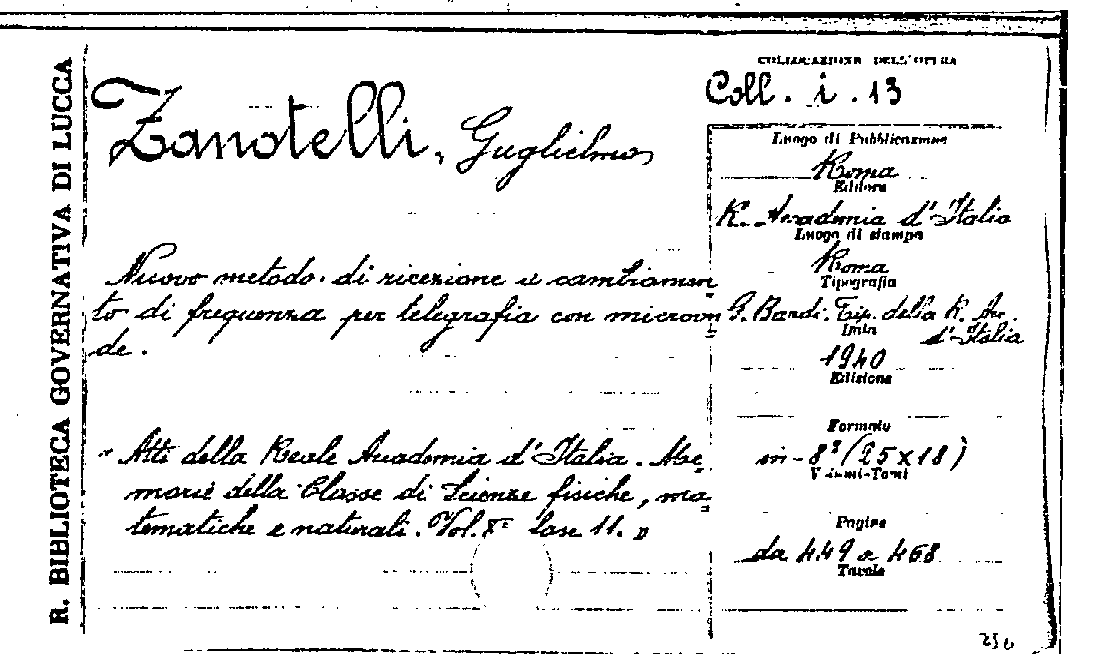 R. BIBLIOTECA GOVERNATIVA DI LUCCA
Zanotelli, Guglielmo
Nuovo metodo di ricezione e cambiamen
to di frequenza per telegrafia con microon
de.
" Atti della Reale Accademia d'Italia. Me
morie della Classe di Scienze fisiche, ma
tematiche e naturali. Vol. X° fasc 11. "
COLLOCAZIONE DELL'OPERA
Coll. i. 13
Luogo di Pubblicazione
Roma
Editore
R. Accademia d'Italia
Luogo di stampa
Roma
Tipografia
G. Bardi. Tip. della R. Ac.
d'Italia
Anno
1940
Edizione
Formato
in-8° (25x18)
Volumi-Tomi
Pagine
da 449 a 468
Tavole